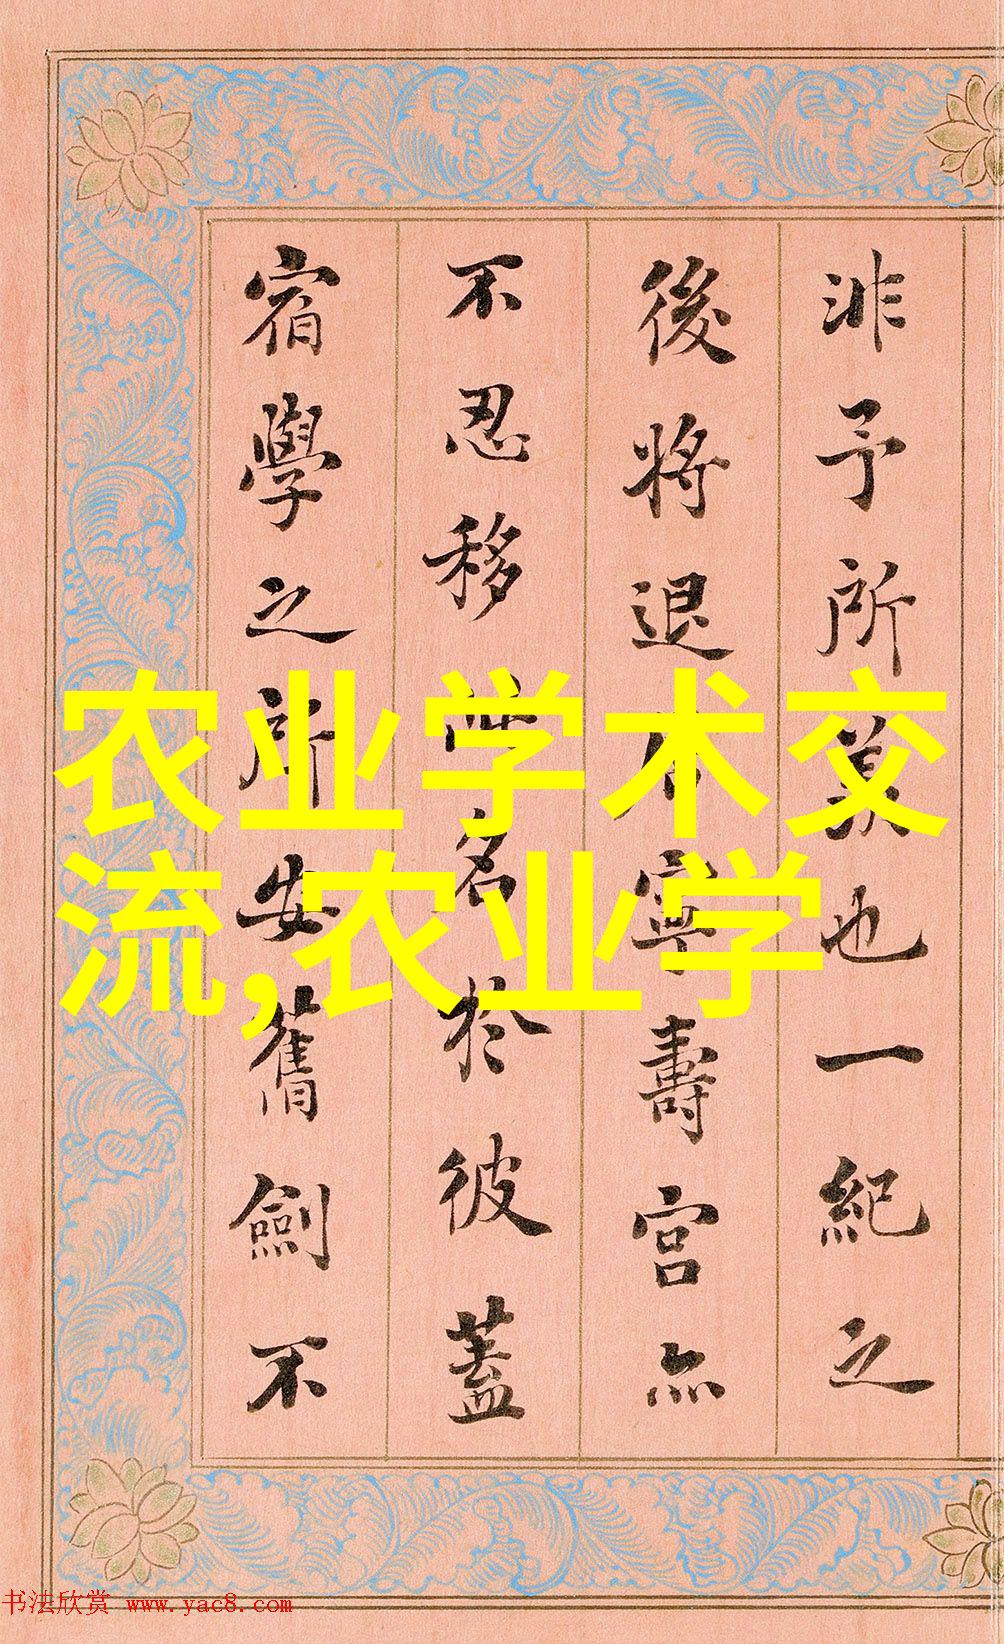 非予所也一紀之
後將退居寧壽宮亦
不忍移此名於彼蓋
宿學之所安舊劍不
农业学术交
流,农业学
书法欣赏 www.yac8.com